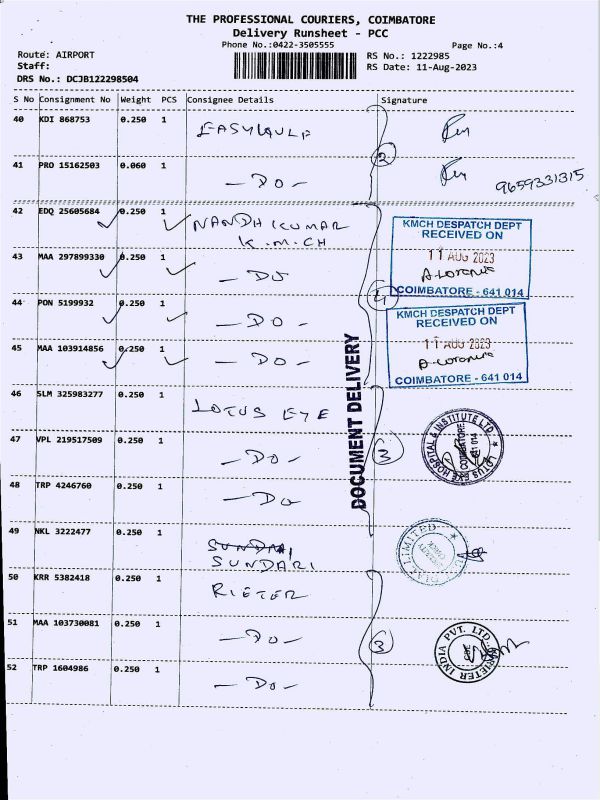 THE PROFESSIONAL COURIERS, COIMBATORE
Delivery Runsheet - PCC
Phone No.:0422-3505555
Page No.:4
Route: AIRPORT
RS No.: 1222985
Staff:
RS Date: 11-Aug-2023
DRS No.: DCJB122298504
S No Consignment No Weight PCS Consignee Details Signature
40 KDI 868753 0.250 1
2
41 PRO 15162503 0.060 1 - DO -
9659331315
42 EDQ 25605684 0.250 1 NANDHKUMAR
K.M.CH
KMCH DESPATCH DEPT
RECEIVED ON
11 AUG 2023
COIMBATORE - 641 014
43 MAA 297899330 0.250 1 - DO
4
44 PON 5199932 0.250 1 - DO -
KMCH DESPATCH DEPT
RECEIVED ON
11 AUG 2023
COIMBATORE - 641 014
45 MAA 103914856 0.250 1 - DO -
DOCUMENT DELIVERY
46 SLM 325983277 0.250 1 LOTUS EYE
LOTUS EYE HOSPITAL & INSTITUTE LTD
COIMBATORE
641 014
47 VPL 219517509 0.250 1 - DO -
3
48 TRP 4246760 0.250 1 - DO
49 NKL 3222477 0.250 1
SUNDARI
LIMITED
50 KRR 5382418 0.250 1 RIETER
51 MAA 103730081 0.250 1 - DO -
3
RIETER INDIA PVT. LTD.
52 TRP 1604986 0.250 1 - DO -